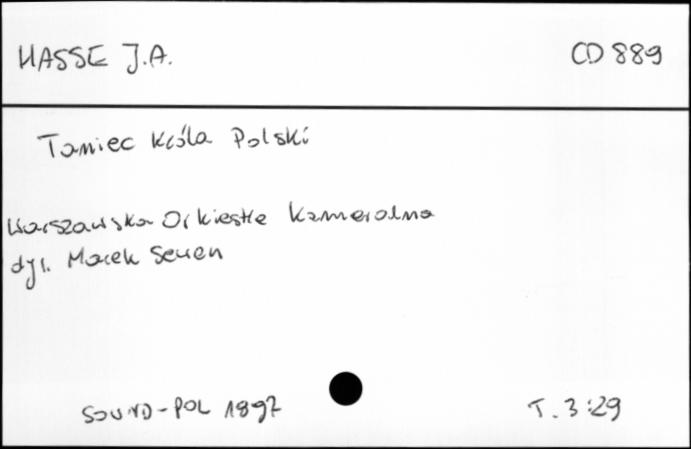 HASSE J.A.
CD 889
Taniec Króla Polski
Warszawska Orkiestra Kameralna
dyr. Marek Sewen
SOUND-POL 1897
T. 3:29